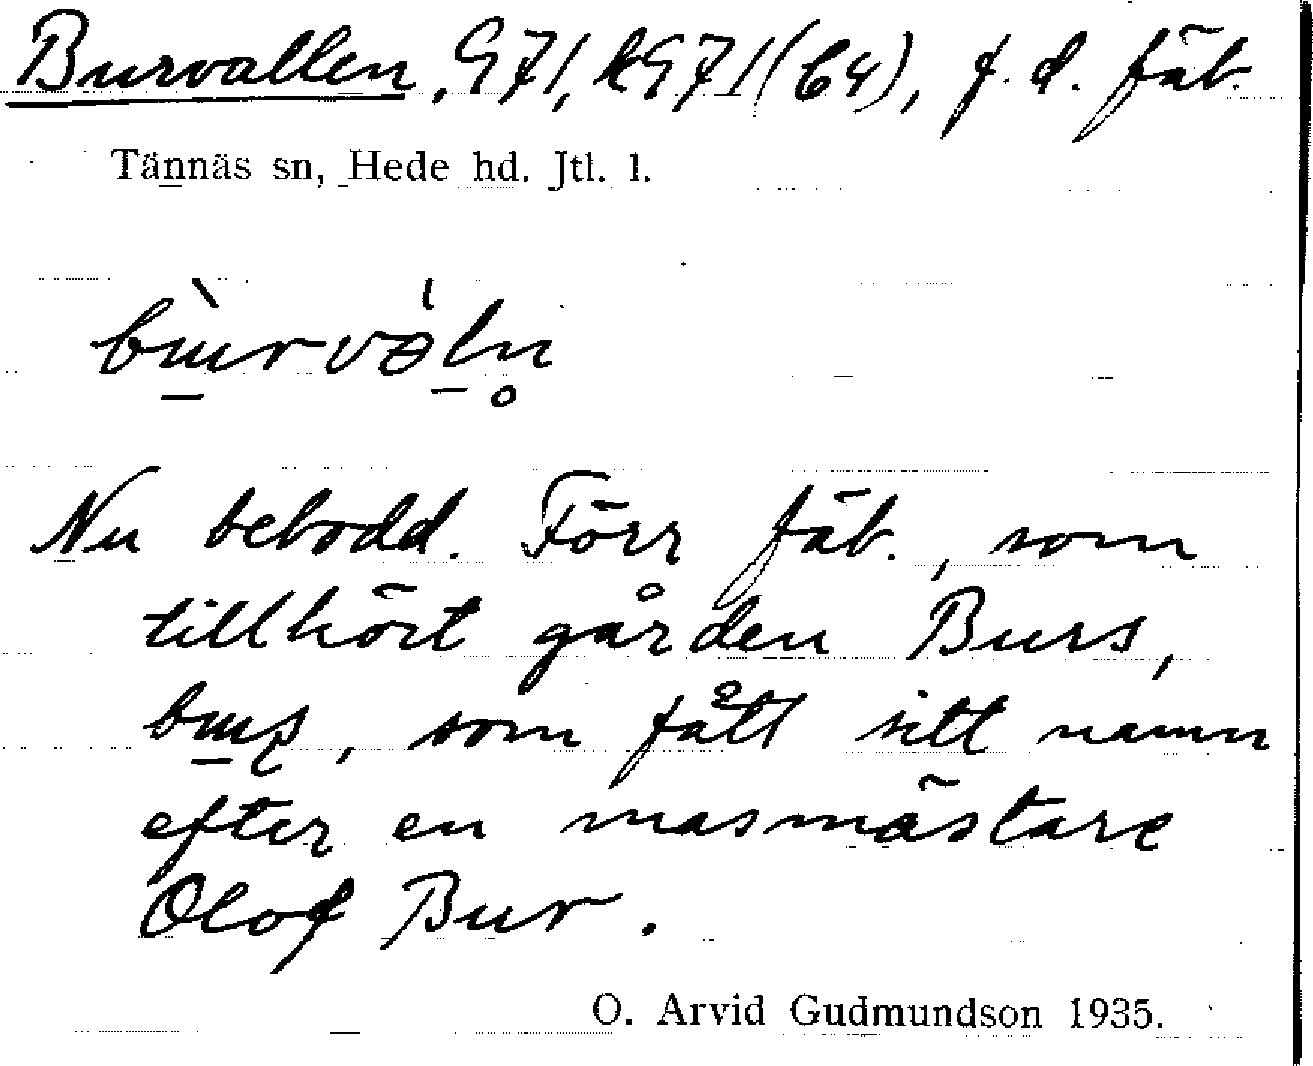 Burvallen, G71, kG71(64), f. d. fäb.
Tännäs sn, Hede hd. Jtl. l.
Nu bebodd. Förr fäb., som
tillhört gården Burs,
som fått sitt namn
efter en masmästare
Olof Bur.
O. Arvid Gudmundson 1935.